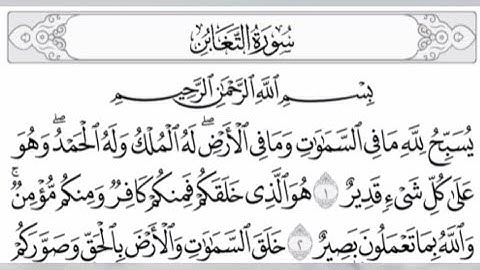 سُورَةُ التَّغَابُنِ
بِسْمِ اللَّهِ الرَّحْمَٰنِ الرَّحِيمِ
يُسَبِّحُ لِلَّهِ مَا فِي السَّمَاوَاتِ وَمَا فِي الْأَرْضِ ۖ لَهُ الْمُلْكُ وَلَهُ الْحَمْدُ ۖ وَهُوَ
عَلَىٰ كُلِّ شَيْءٍ قَدِيرٌ ۝١ هُوَ الَّذِي خَلَقَكُمْ فَمِنكُمْ كَافِرٌ وَمِنكُم مُّؤْمِنٌ ۚ
وَاللَّهُ بِمَا تَعْمَلُونَ بَصِيرٌ ۝٢ خَلَقَ السَّمَاوَاتِ وَالْأَرْضَ بِالْحَقِّ وَصَوَّرَكُمْ